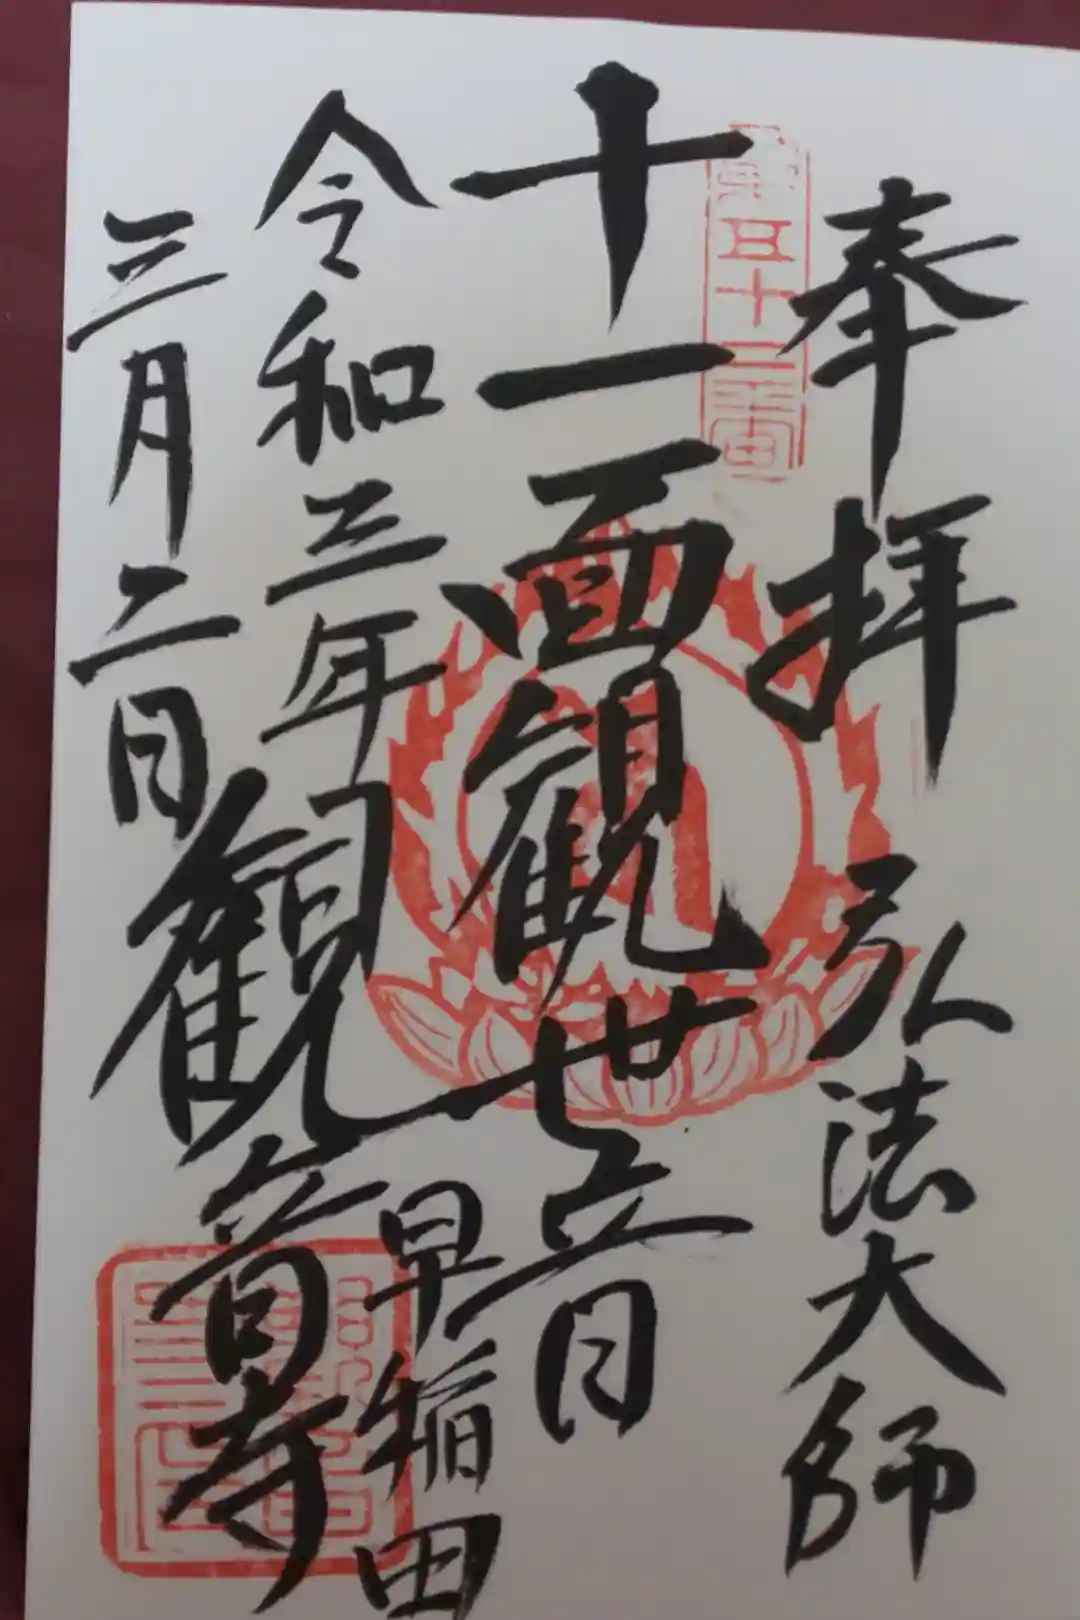 奉拝 弘法大師
第五十二番
十一面觀世音
早稲田
令和三年
觀音寺
三月二日